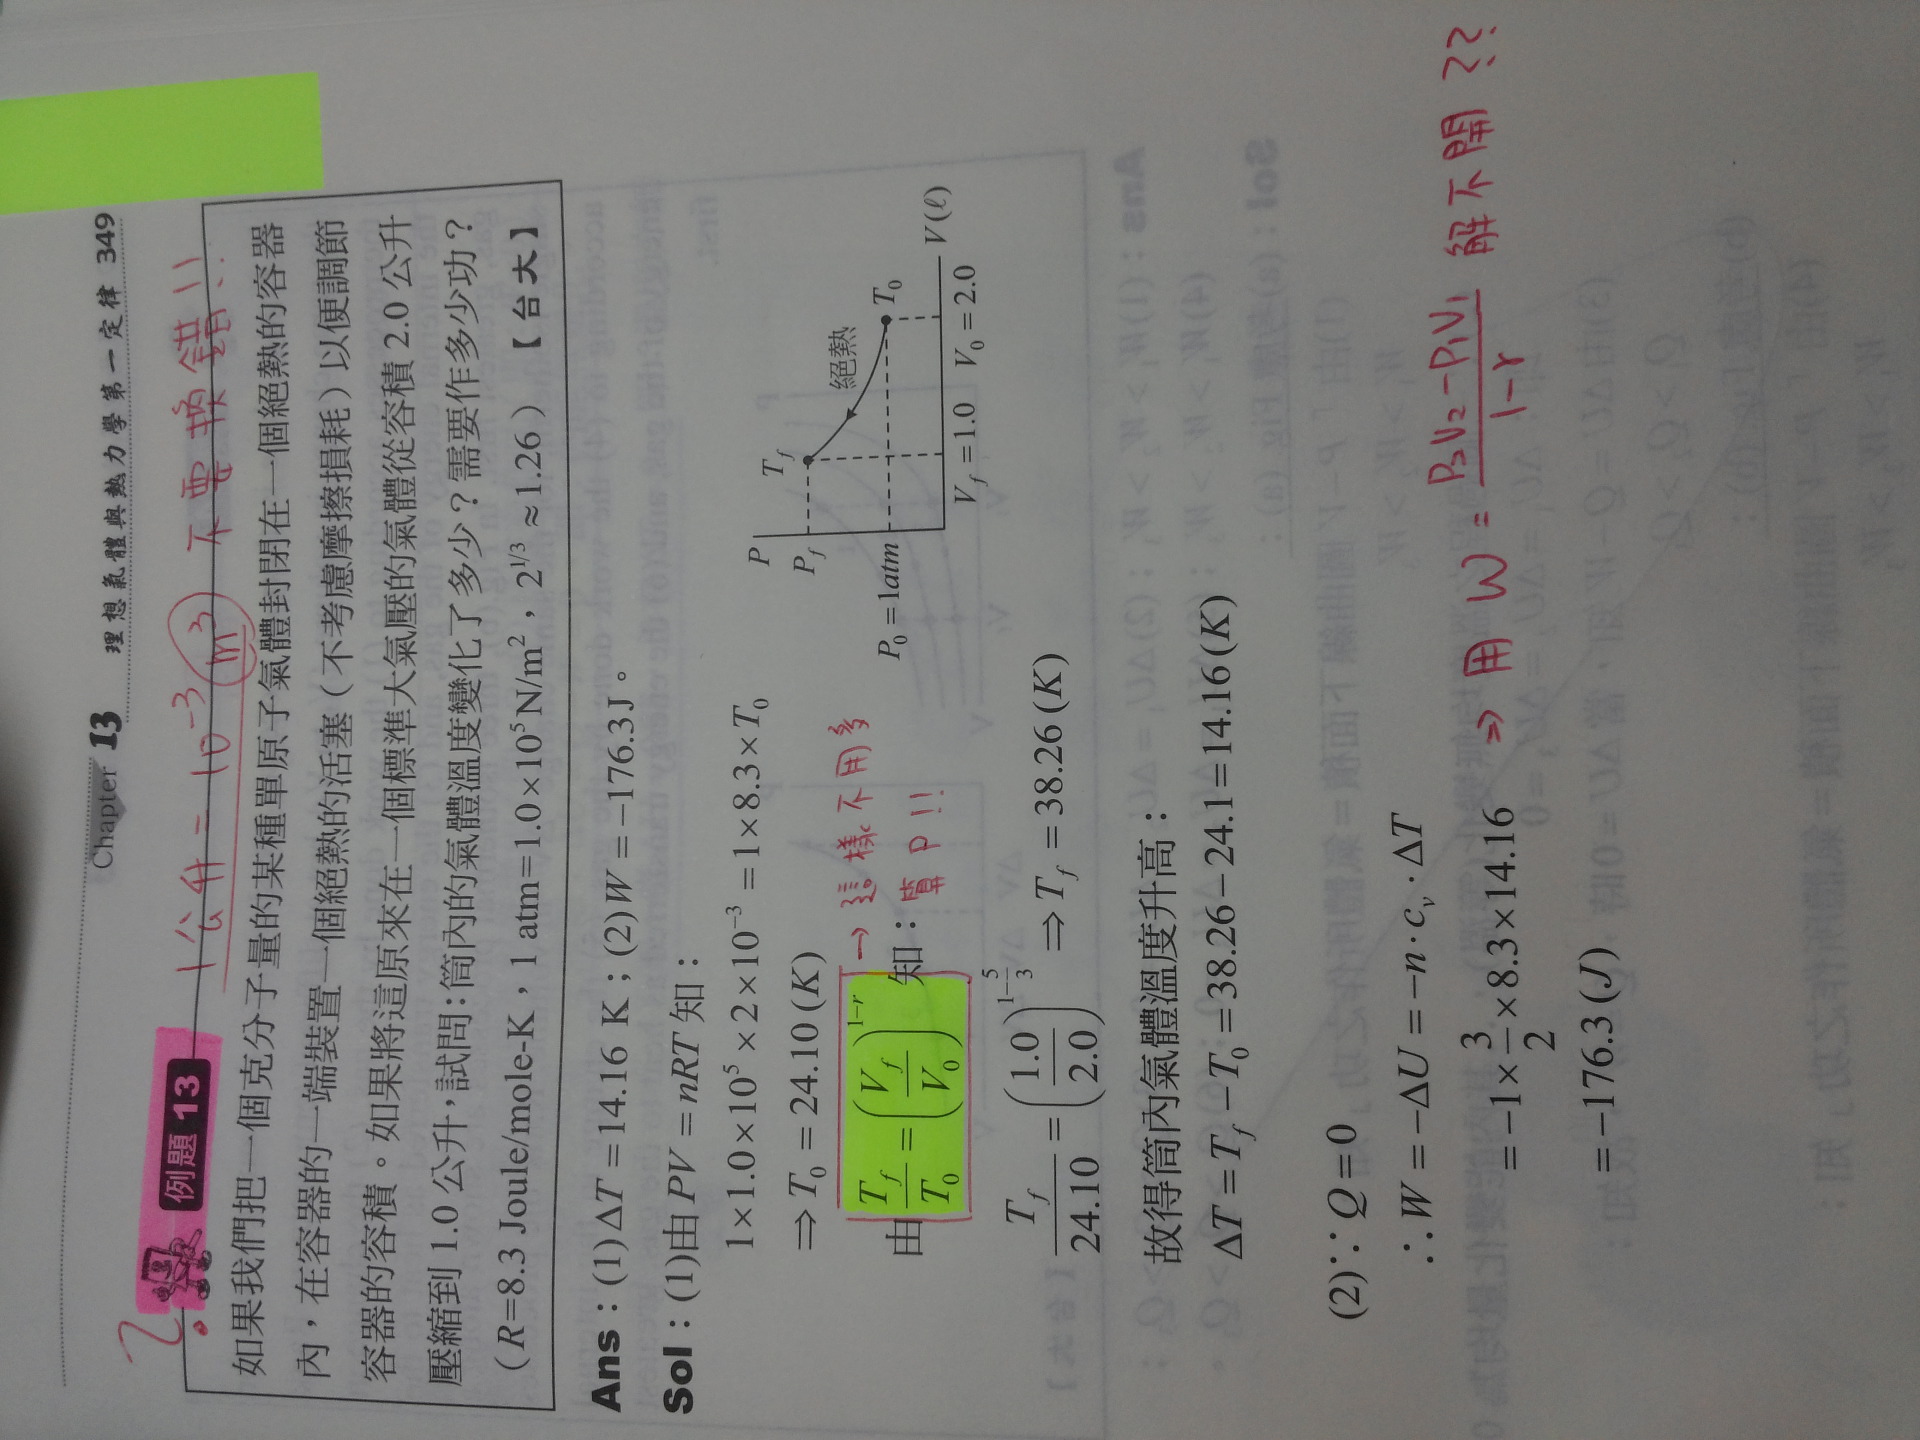 Chapter 13 理想氣體與熱力學第一定律 349
1公升=10⁻³ m³ 不要換錯!!
例題 13
如果我們把一個克分子量的某種單原子氣體封閉在一個絕熱的容器
內,在容器的一端裝置一個絕熱的活塞(不考慮摩擦損耗)以便調節
容器的容積。如果將這原來在一個標準大氣壓的氣體從容積 2.0 公升
壓縮到 1.0 公升,試問:筒內的氣體溫度變化了多少?需要作多少功?
(R=8.3 Joule/mole-K,1 atm=1.0×10⁵N/m²,2^{1/3}≈1.26)【台大】
Ans:(1)ΔT=14.16 K;(2)W=−176.3J。
Sol:(1)由PV=nRT知:
1×1.0×10⁵×2×10⁻³=1×8.3×T₀
⇒T₀=24.10(K)
由 T_f/T₀=(V_f/V₀)^{1−r} 知:
→這樣不用多
算P!!
T_f/24.10=(1.0/2.0)^{1−5/3} ⇒T_f=38.26(K)
P
P_f
T_f
絕熱
T₀
P₀=1atm
V_f=1.0 V₀=2.0
V(ℓ)
故得筒內氣體溫度升高:
ΔT=T_f−T₀=38.26−24.1=14.16(K)
(2)∵Q=0
∴W=−ΔU=−n·c_v·ΔT
=−1×3/2×8.3×14.16
=−176.3(J)
⇒用 W=(P₂V₂−P₁V₁)/(1−r) 解不開??